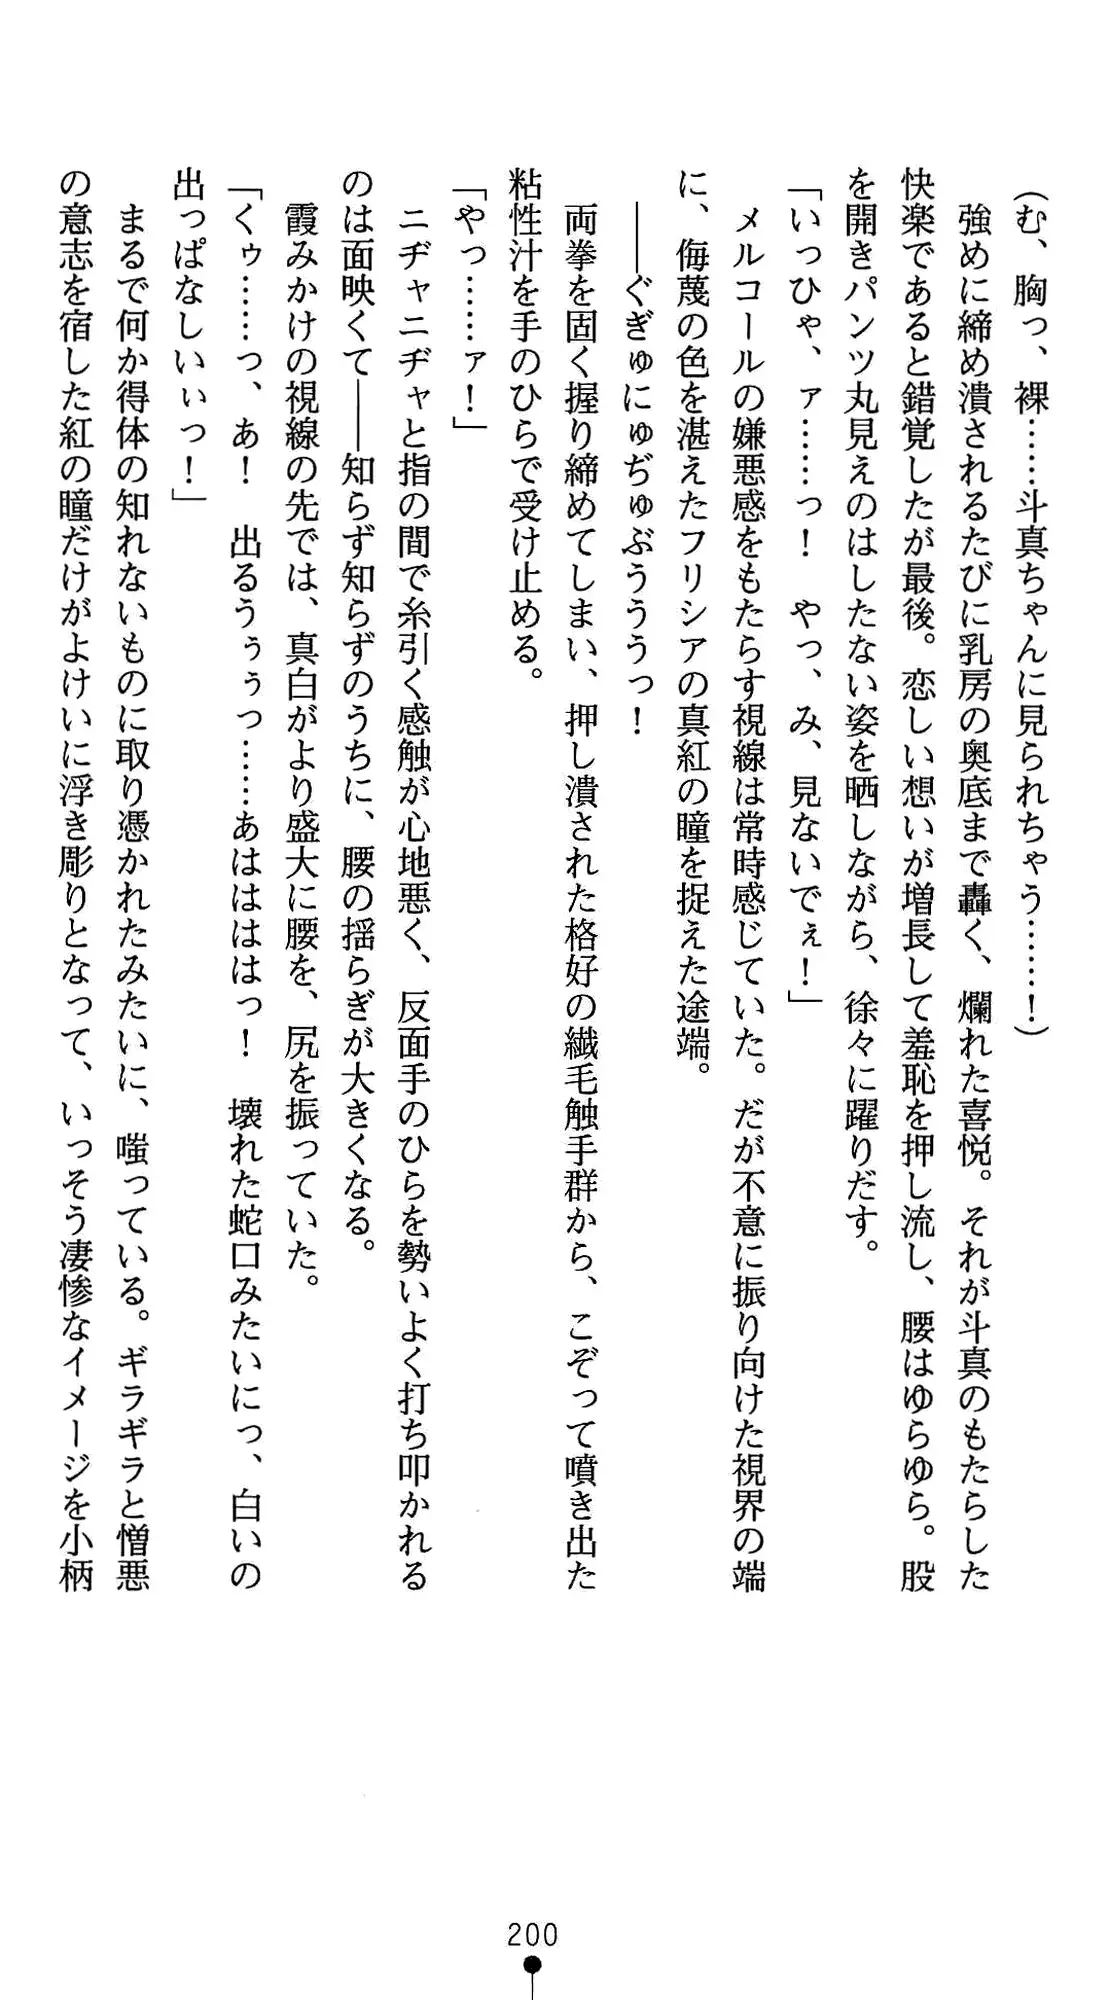 （む、胸っ、裸……斗真ちゃんに見られちゃう……！）
強めに締め潰されるたびに乳房の奥底まで轟く、爛れた喜悦。それが斗真のもたらした
快楽であると錯覚したが最後。恋しい想いが増長して羞恥を押し流し、腰はゆらゆら。股
を開きパンツ丸見えのはしたない姿を晒しながら、徐々に躍りだす。
「いっひゃ、ァ……っ！　やっ、み、見ないでぇ！」
メルコールの嫌悪感をもたらす視線は常時感じていた。だが不意に振り向けた視界の端
に、侮蔑の色を湛えたフリシアの真紅の瞳を捉えた途端。
――ぐぎゅにゅぢゅぶうううっ！
両拳を固く握り締めてしまい、押し潰された格好の繊毛触手群から、こぞって噴き出た
粘性汁を手のひらで受け止める。
「やっ……ァ！」
ニヂャニヂャと指の間で糸引く感触が心地悪く、反面手のひらを勢いよく打ち叩かれる
のは面映くて――知らず知らずのうちに、腰の揺らぎが大きくなる。
霞みかけの視線の先では、真白がより盛大に腰を、尻を振っていた。
「くゥ……っ、あ！　出るうぅぅっ……あはははっ！　壊れた蛇口みたいにっ、白いの
出っぱなしいぃっ！」
まるで何か得体の知れないものに取り憑かれたみたいに、嗤っている。ギラギラと憎悪
の意志を宿した紅の瞳だけがよけいに浮き彫りとなって、いっそう凄惨なイメージを小柄
200